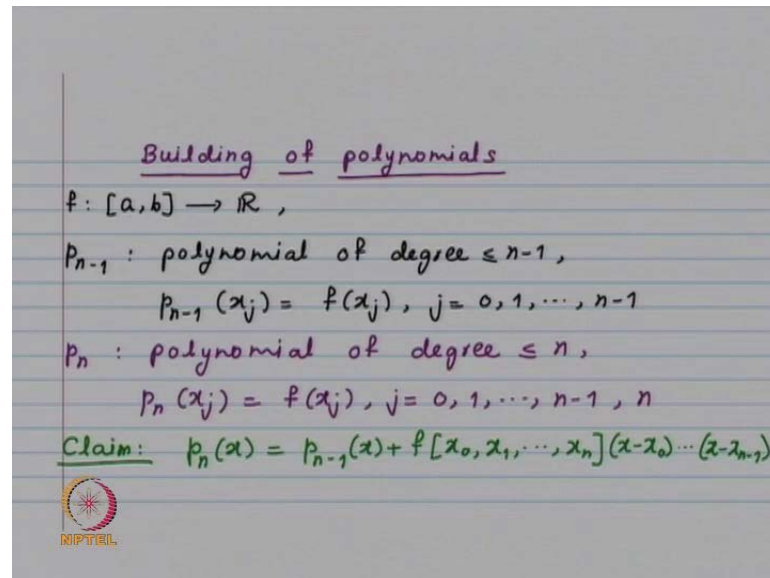 Building of polynomials
f: [a,b] → ℝ ,
p_{n-1} : polynomial of degree ≤ n-1 ,
p_{n-1} (x_j) = f(x_j) , j = 0, 1, ..., n-1
p_n : polynomial of degree ≤ n ,
p_n (x_j) = f(x_j) , j = 0, 1, ..., n-1 , n
Claim: p_n(x) = p_{n-1}(x) + f[x_0, x_1, ..., x_n](x-x_0)...(x-x_{n-1})
NPTEL